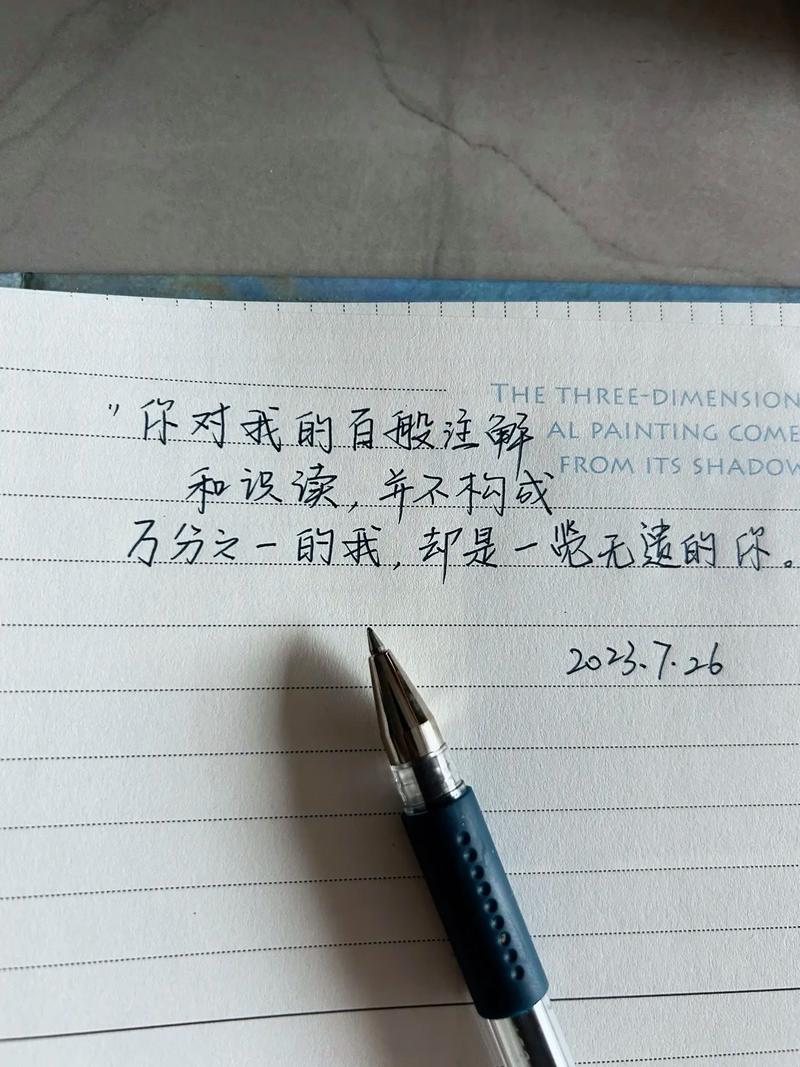 THE THREE-DIMENSION
AL PAINTING COME
FROM ITS SHADOW
"你对我的百般注解
和识读,并不构成
万分之一的我,却是一览无遗的你。
2023.7.26